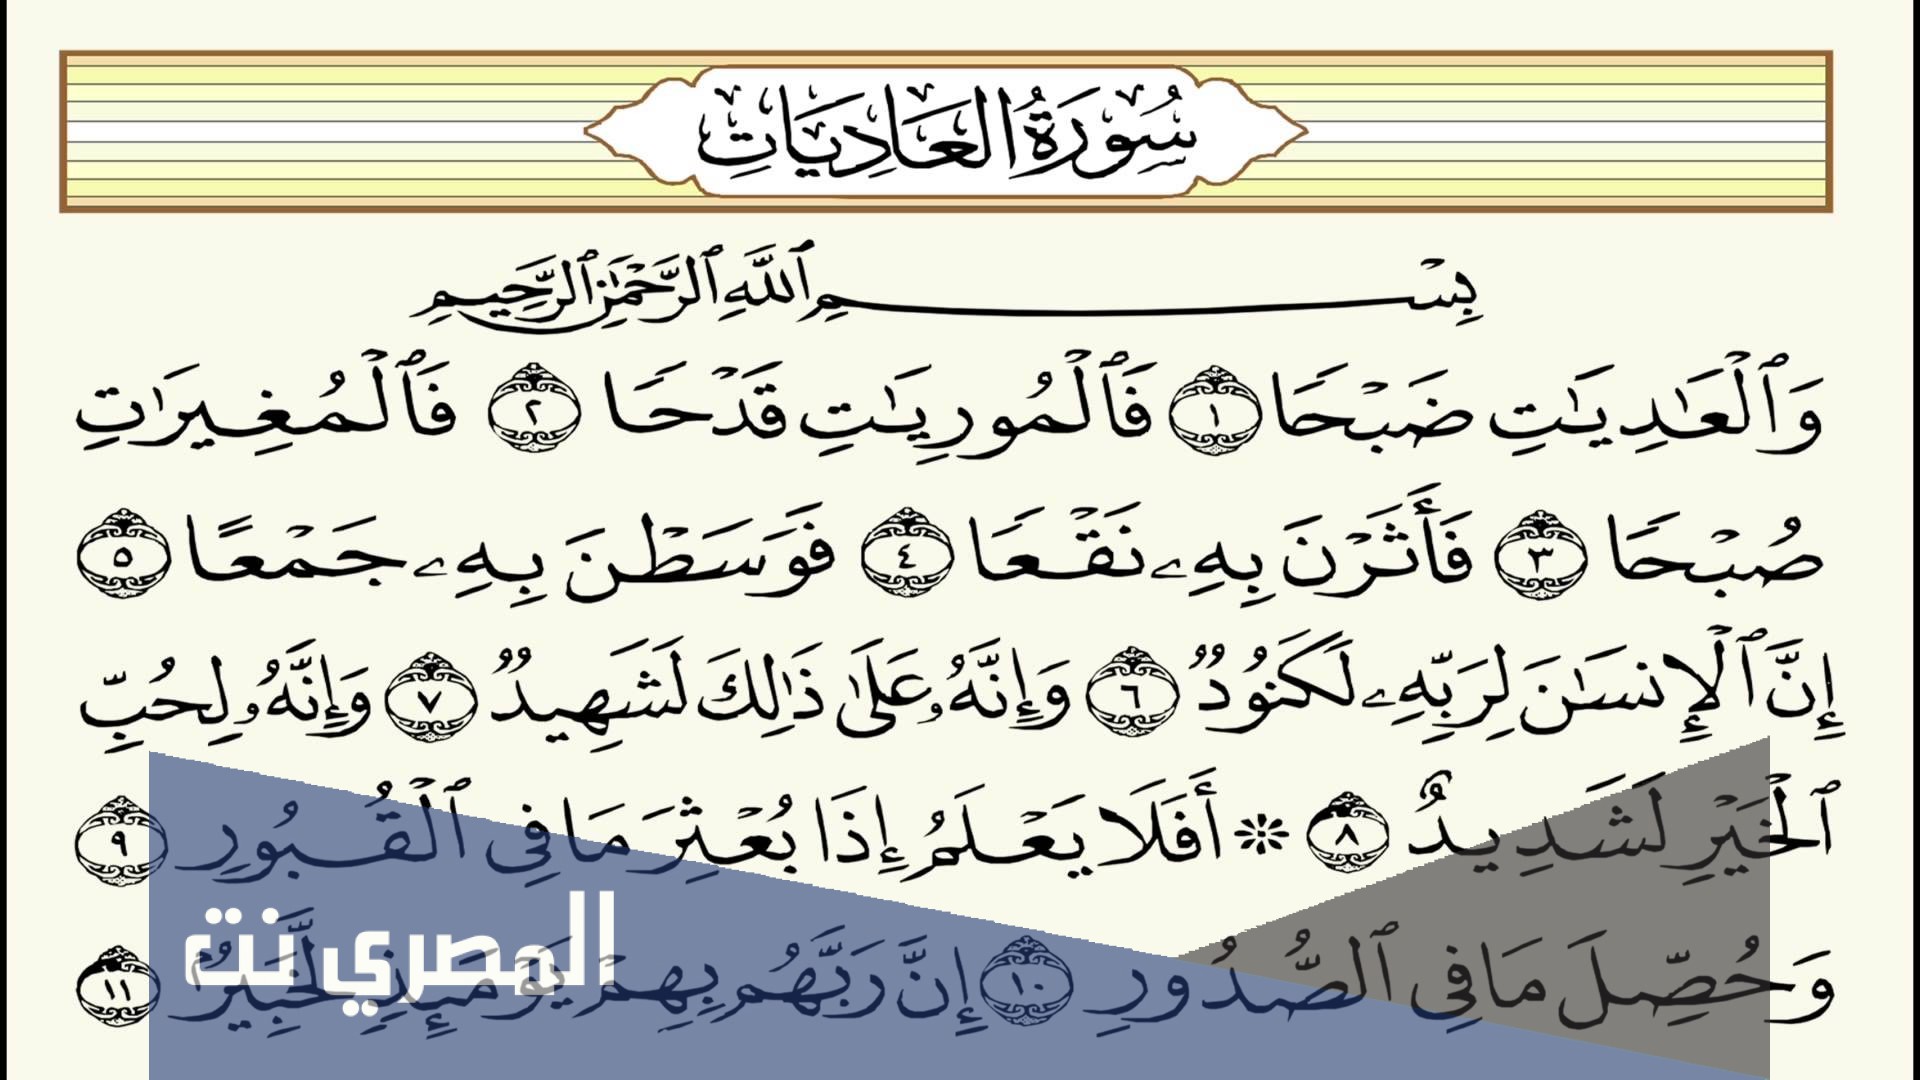 سُورَةُ الْعَادِيَاتِ
بِسْمِ ٱللَّهِ ٱلرَّحْمَٰنِ ٱلرَّحِيمِ
وَٱلْعَٰدِيَٰتِ ضَبْحًا ١ فَٱلْمُورِيَٰتِ قَدْحًا ٢ فَٱلْمُغِيرَٰتِ
صُبْحًا ٣ فَأَثَرْنَ بِهِۦ نَقْعًا ٤ فَوَسَطْنَ بِهِۦ جَمْعًا ٥
إِنَّ ٱلْإِنسَٰنَ لِرَبِّهِۦ لَكَنُودٌ ٦ وَإِنَّهُۥ عَلَىٰ ذَٰلِكَ لَشَهِيدٌ ٧ وَإِنَّهُۥ لِحُبِّ
ٱلْخَيْرِ لَشَدِيدٌ ٨ ۞ أَفَلَا يَعْلَمُ إِذَا بُعْثِرَ مَا فِى ٱلْقُبُورِ ٩
وَحُصِّلَ مَا فِى ٱلصُّدُورِ ١٠ إِنَّ رَبَّهُم بِهِمْ يَوْمَئِذٍ لَّخَبِيرٌۢ ١١
المصري نت